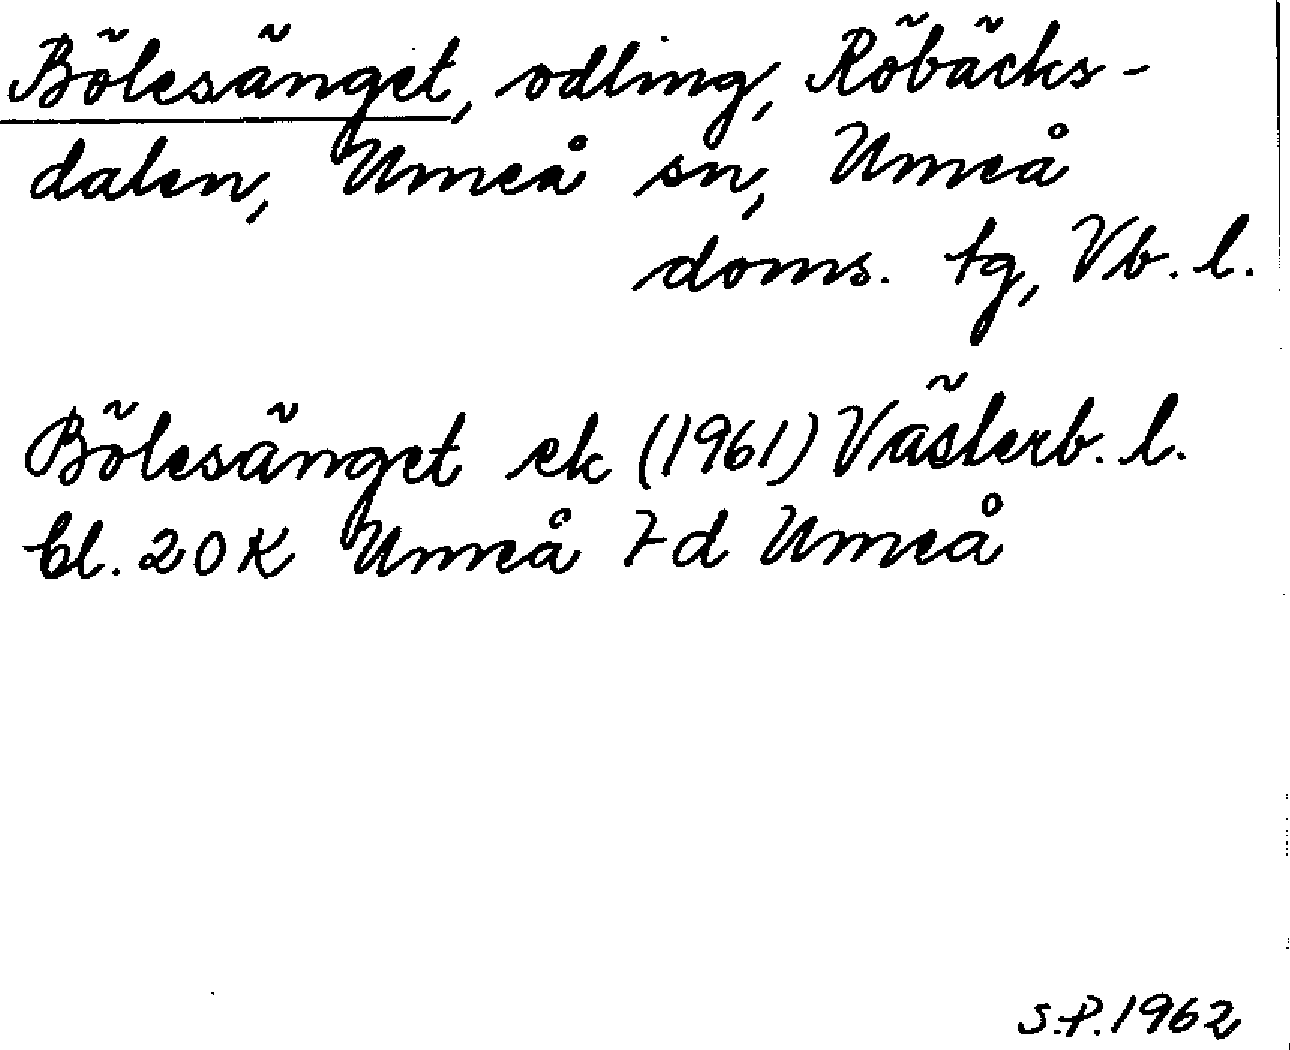 Bölesänget, odling, Röbäcks-
dalen, Umeå sn, Umeå
doms. tg, Vb. l.
Bölesänget ek (1961) Västerb. l.
bl. 20 K Umeå 7d Umeå
S.P. 1962